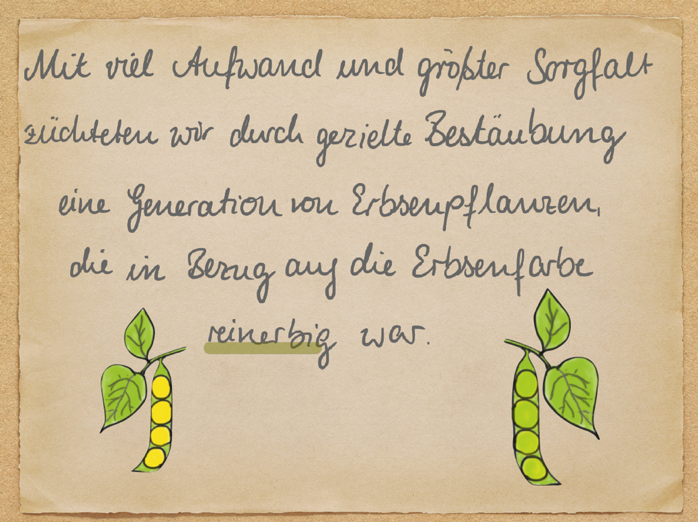 Mit viel Aufwand und größter Sorgfalt
züchteten wir durch gezielte Bestäubung
eine Generation von Erbsenpflanzen,
die in Bezug auf die Erbsenfarbe
reinerbig war.